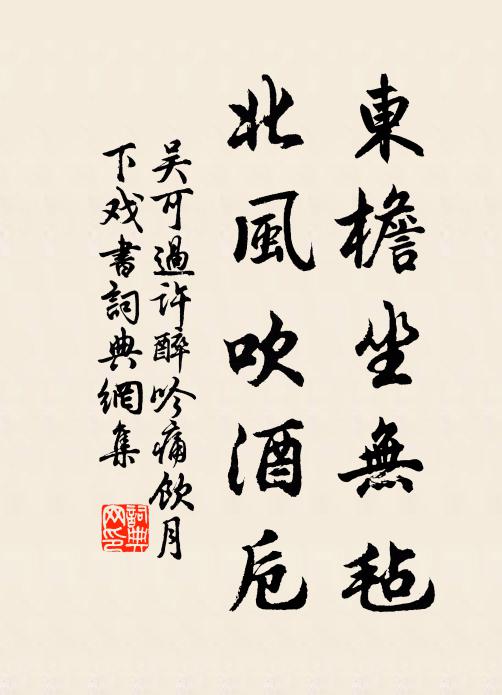 東檐坐無毡
北風吹酒卮
吴可過许醉吟痛飲月
下戏書詞典網集
詞典网印